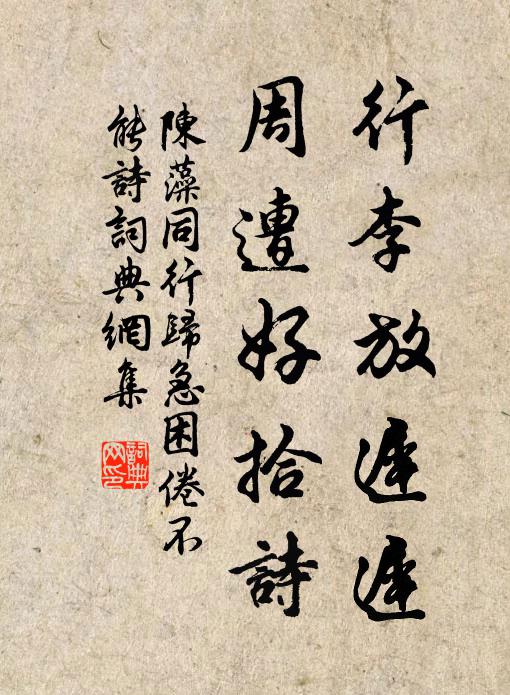 行李放遲遲
周遭好拾詩
陳藻同行歸急困倦不
能詩詞典網集
詞典
網印